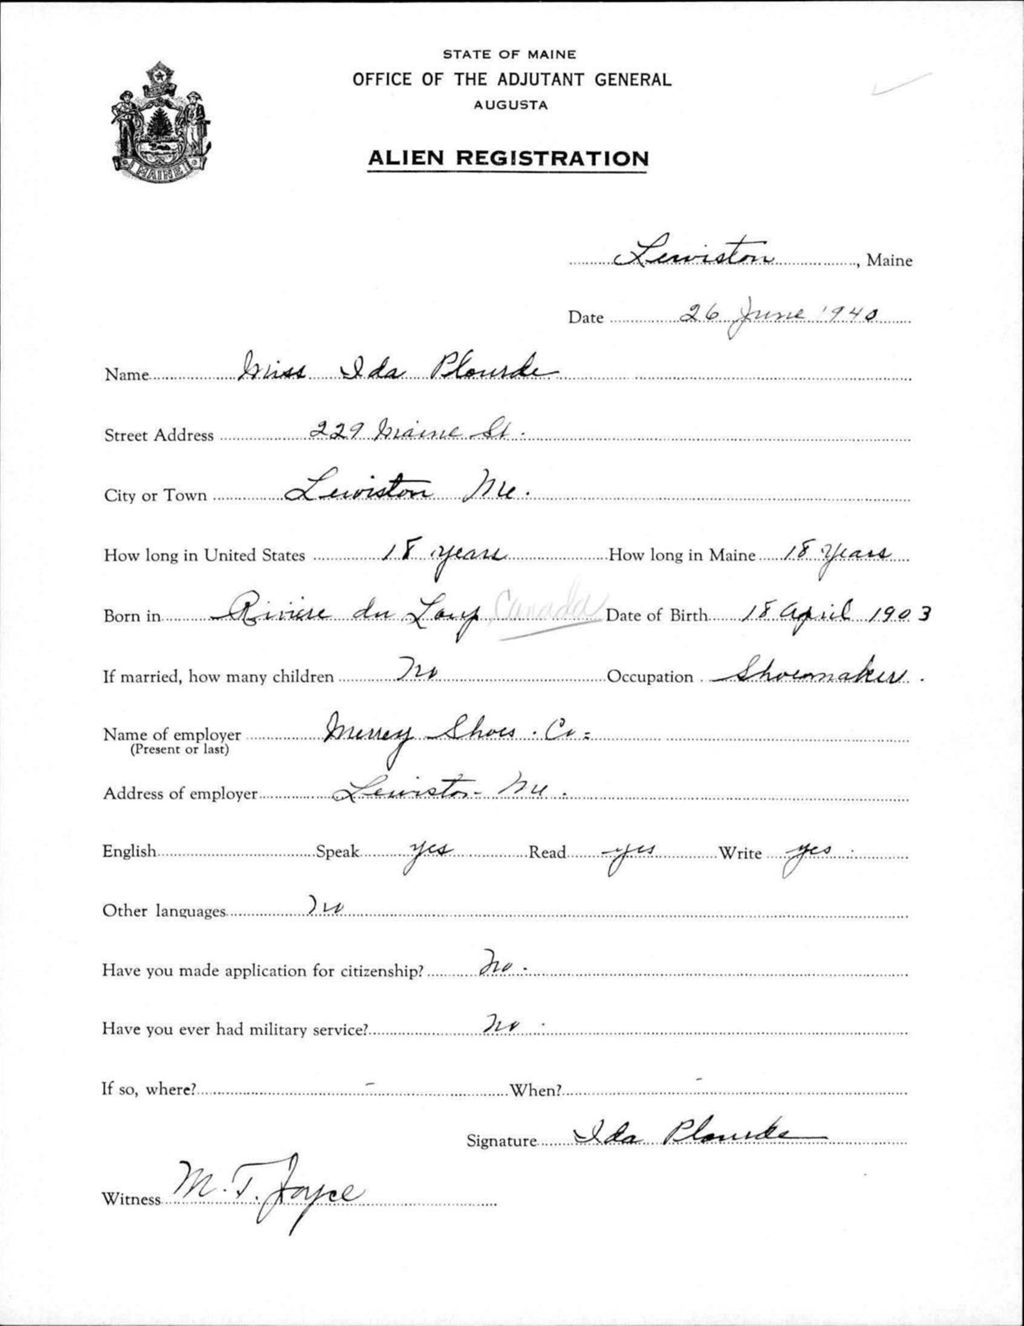 STATE OF MAINE
OFFICE OF THE ADJUTANT GENERAL
AUGUSTA
ALIEN REGISTRATION
MAINE
Lewiston, Maine
Date 26 June 1940
Name Miss Ida Plourde
Street Address 229 Maine St.
City or Town Lewiston Me.
How long in United States 18 years How long in Maine 18 Years
Born in Riviere du Loup Canada Date of Birth 18 April 1903
If married, how many children No Occupation Shoemaker.
Name of employer Shoes. Co.
(Present or last)
Address of employer Lewiston - Me.
English Speak yes Read yes Write yes
Other languages No
Have you made application for citizenship? No.
Have you ever had military service? No.
If so, where? - When? -
Signature Ida Plourde
Witness M. T. Joyce